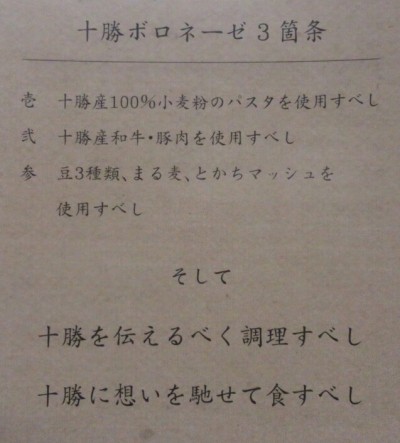 十勝ボロネーゼ3箇条
壱 十勝産100%小麦粉のパスタを使用すべし
弐 十勝産和牛・豚肉を使用すべし
参 豆3種類、まる麦、とかちマッシュを
使用すべし
そして
十勝を伝えるべく調理すべし
十勝に想いを馳せて食すべし